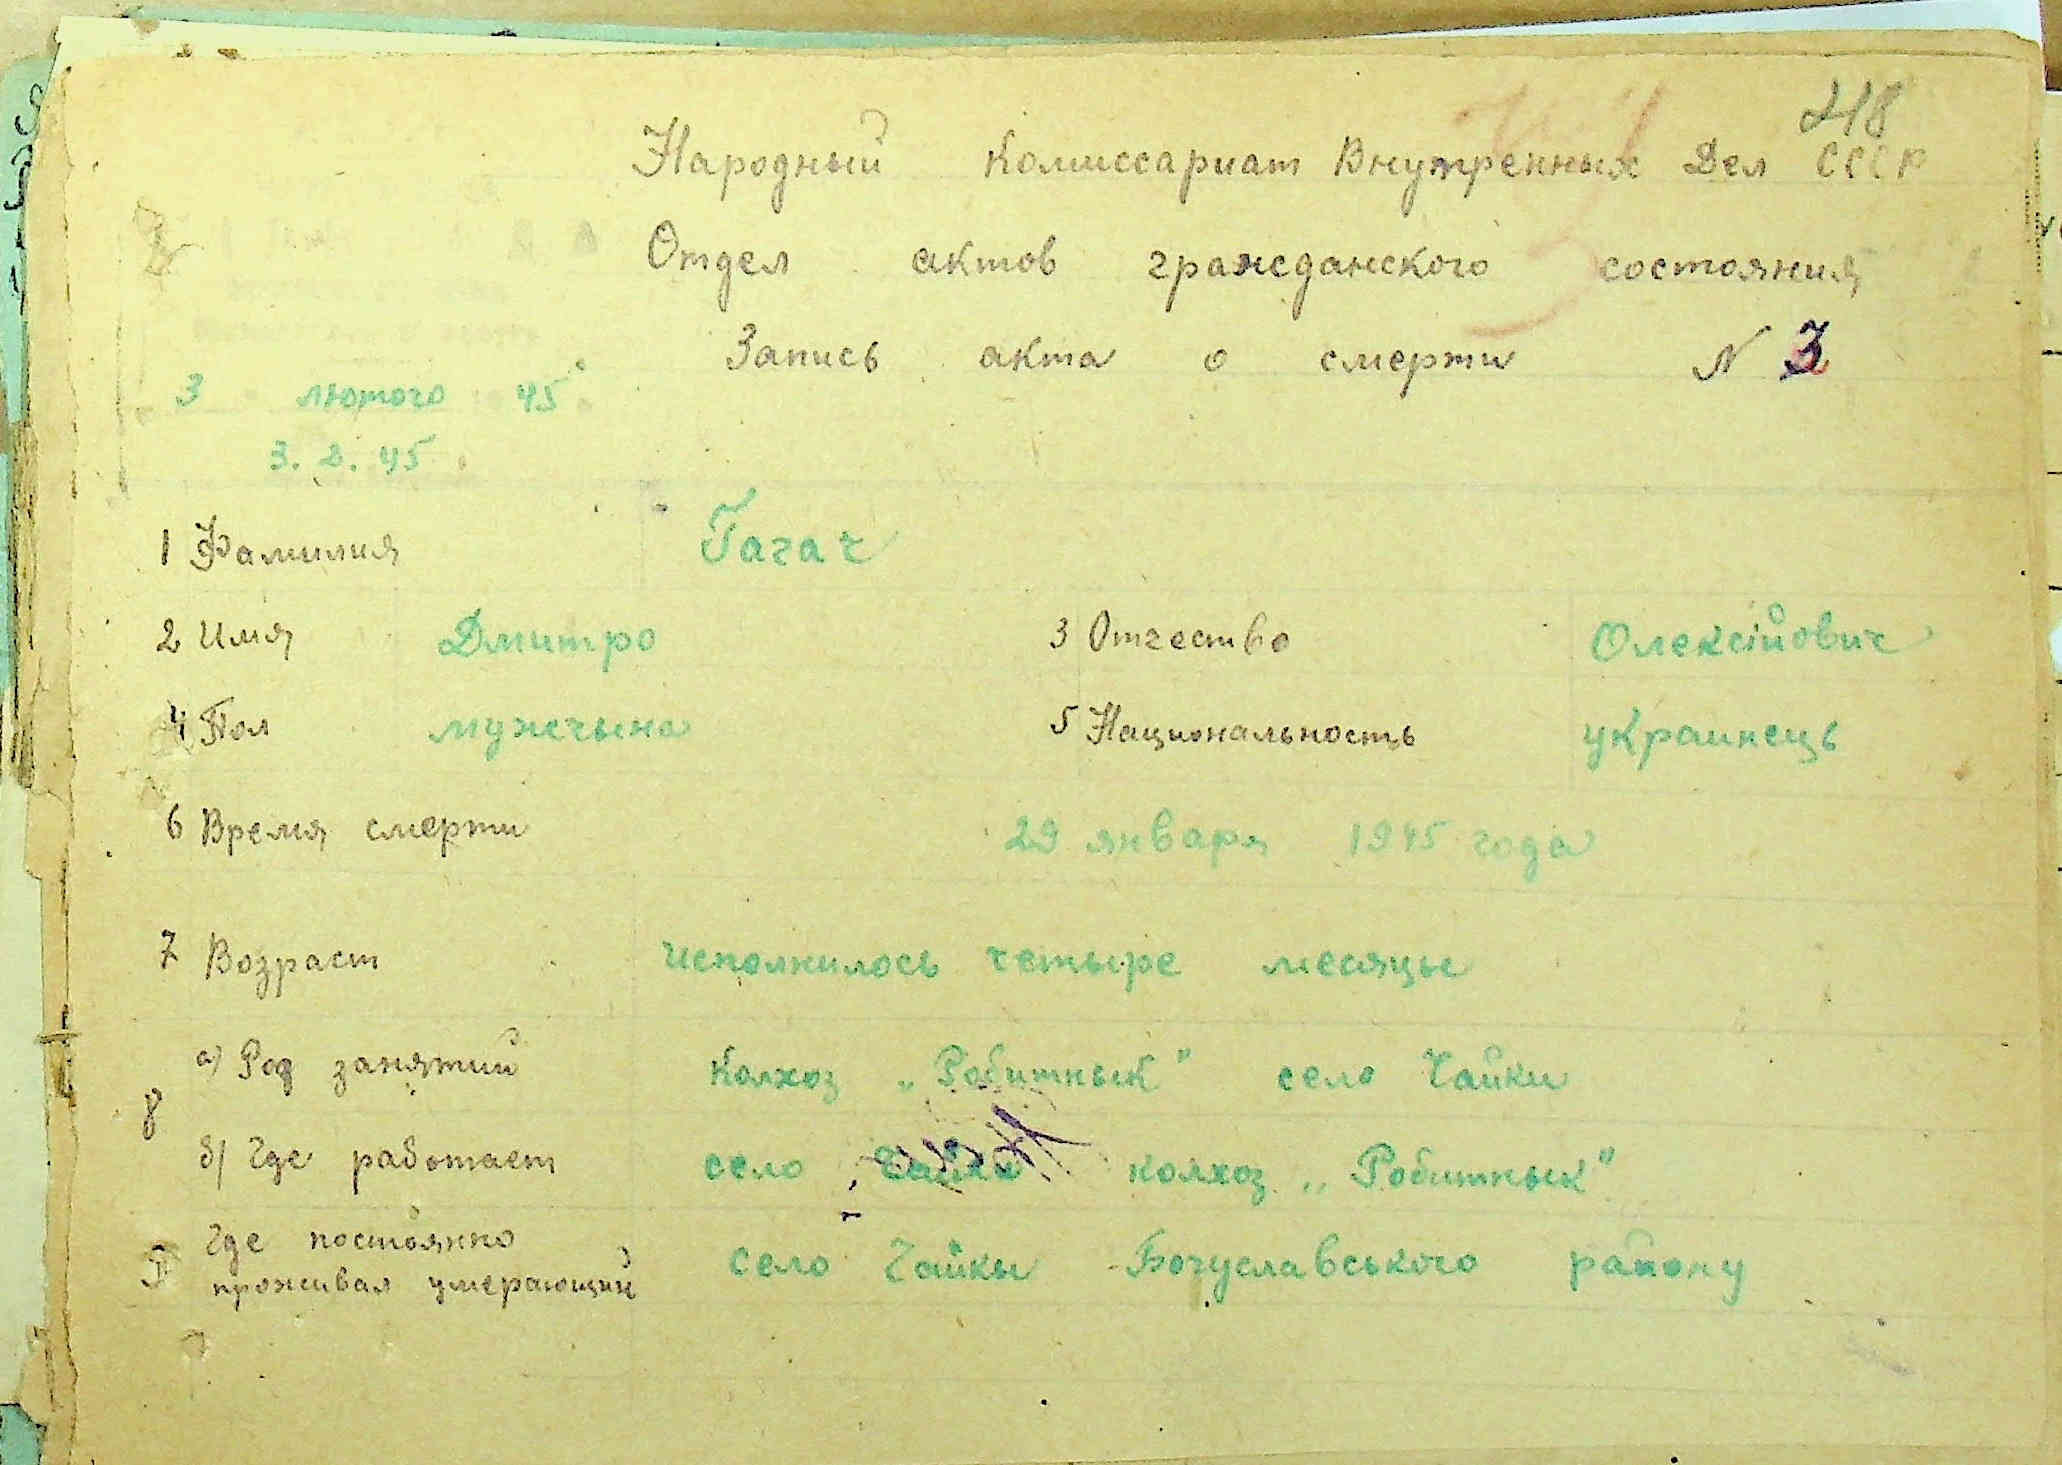 218
Народный Комиссариат Внутренных Дел СССР
Отдел актов гражданского состояния
Запись акта о смерти N 3
3 лютого 45
3. 2. 45
1 Фамилия Гагач
2 Имя Дмитро 3 Отчество Олексійович
4 Пол мужчына 5 Национальность украинець
6 Время смерти 29 января 1945 года
7 Возраст исполнилось четыре месяцы
8 а) Род занятий колхоз „Робитнык" село Чайки
б) Где работает село Чайки колхоз „Робитнык"
Где постоянно
проживал умерающий село Чайкы Богуславського району